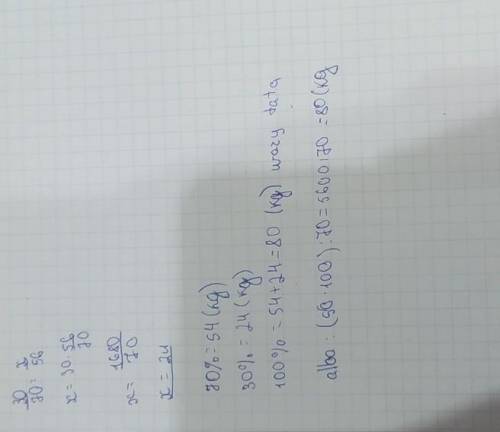 30/70 = x/56
x = 30·56/70
x = 1680/70
x = 24
70% = 54 (kg)
30% = 24 (kg)
100% = 54+24 = 80 (kg) waży tata
albo: (50·100):70 = 5600:70 = 80 (kg